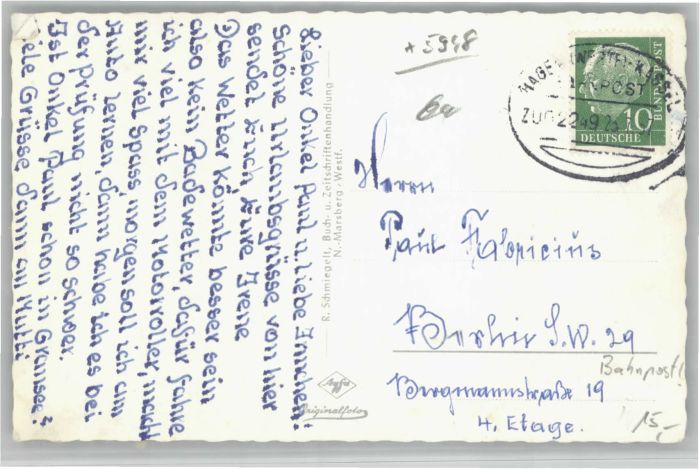 Lieber Onkel Paul u. liebe Ännchen!
Schöne Urlaubsgrüsse von hier
sendet Euch Eure Irene
Das Wetter könnte besser sein
also kein Badewetter, dafür fahre
ich viel mit dem Motoroller, macht
mir viel Spass, morgen soll ich am
Auto lernen, dann habe ich es bei
der Prüfung nicht so schwer.
Ist Onkel Paul schon in Gransee?
Viele Grüsse dann an Mutti
R. Schmiegelt, Buch- u. Zeitschriftenhandlung
N.-Marsberg - Westf.
Agfa
Originalfoto
* 5948
HAGEN (WESTF)-KASSEL
BAHNPOST
ZUG 2249
10
DEUTSCHE
BUNDESPOST
Herrn
Paul Fabricius
Berlin S.W. 29
Bahnpost!
Bergmannstraße 19
4. Etage.
15,-